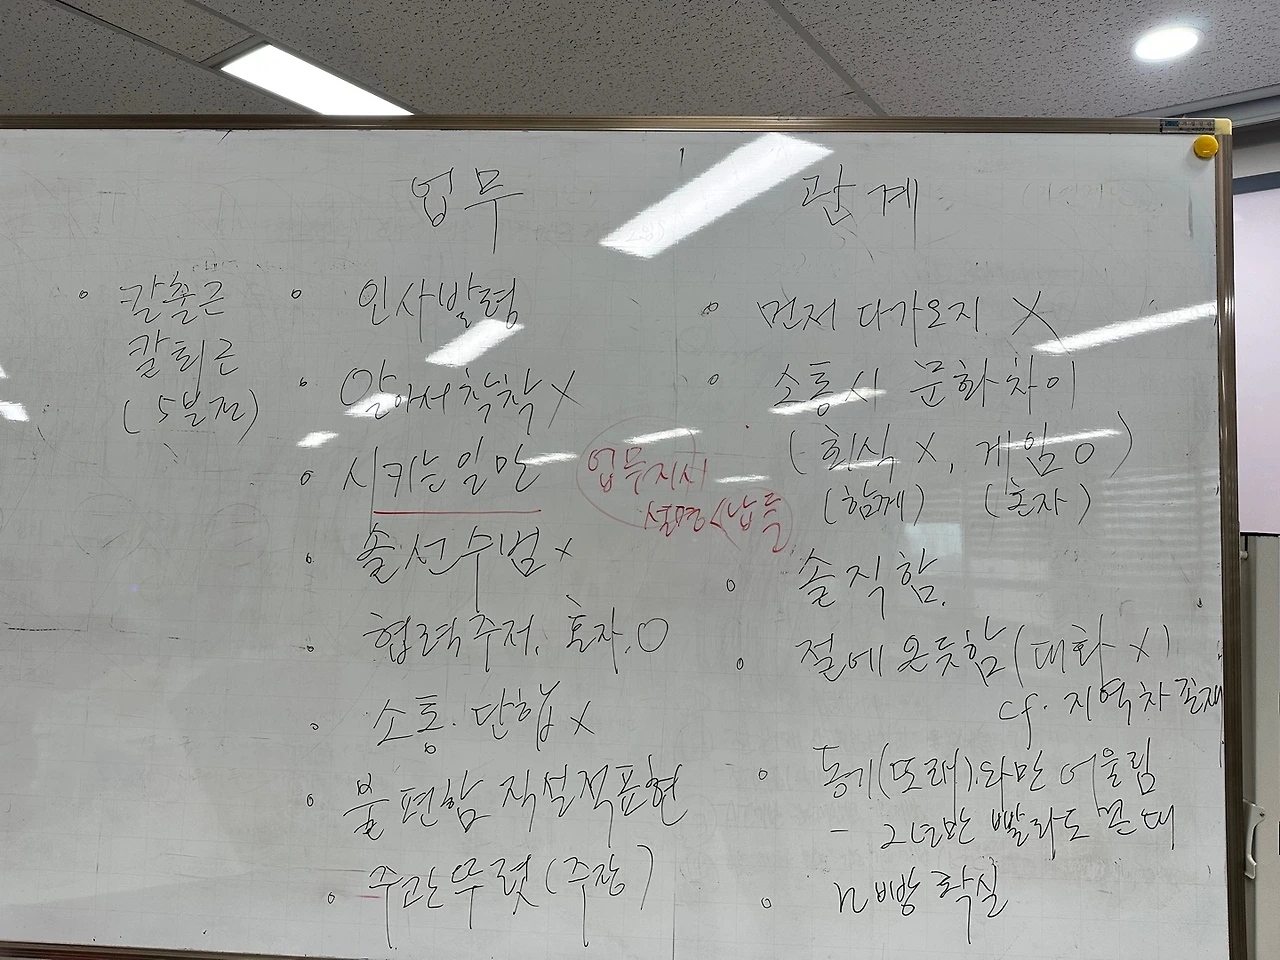 업무
관계
칼출근
칼퇴근
(5분전)
인사발령
알아서척척 X
시키는일만
솔선수범 x
협력주저, 혼자.O
소통·단합 x
불편함 직설적표현
주관뚜렷(주장)
업무지시
설명<납득
먼저 다가오지 X
소통시 문화차이
(회식 X, 게임 O)
(함께) (혼자)
솔직함.
절에온듯함(대화 X)
cf. 지역차 존재
동기(또래)와만 어울림
- 2년만 빨라도 꼰대
n빵 확실